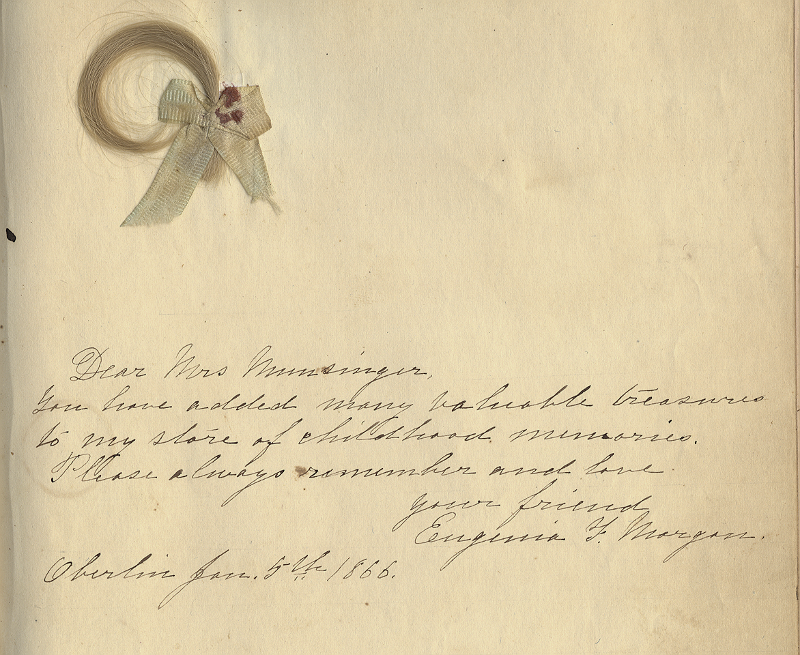 Dear Mrs Munsinger,
You have added many valuable treasures
to my store of childhood memories.
Please always remember and love
your friend
Eugenia F. Morgan.
Oberlin Jan. 5th 1866.